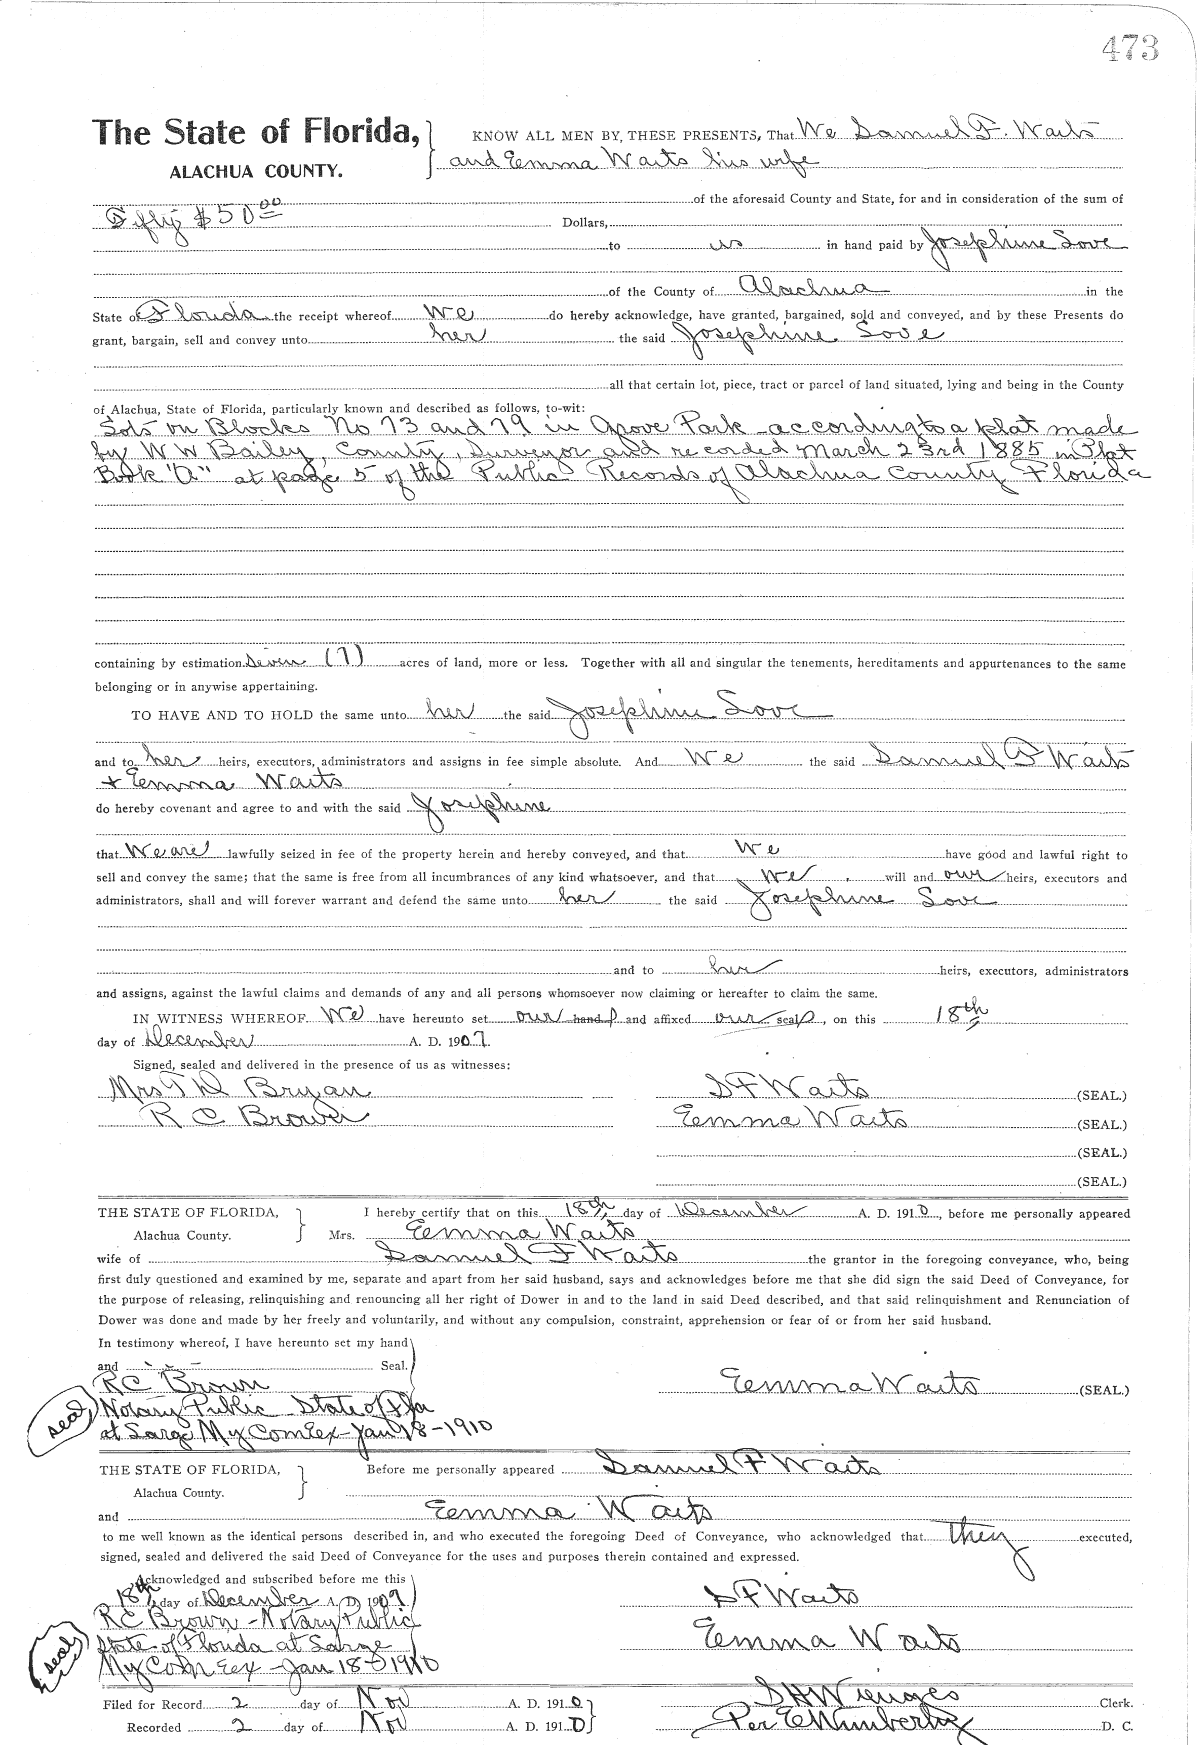 473
The State of Florida, KNOW ALL MEN BY, THESE PRESENTS, That We Samuel F. Waits
ALACHUA COUNTY. and Emma Waits his wife
of the aforesaid County and State, for and in consideration of the sum of
Fifty $50 00 Dollars,
to us in hand paid by Josephine Love
of the County of Alachua in the
State of Florida the receipt whereof We do hereby acknowledge, have granted, bargained, sold and conveyed, and by these Presents do
grant, bargain, sell and convey unto her the said Josephine Love
all that certain lot, piece, tract or parcel of land situated, lying and being in the County
of Alachua, State of Florida, particularly known and described as follows, to-wit:
Lots on Blocks No 73 and 79 in Grove Park according to a plat made
by W W Bailey, County, Surveyor and recorded March 23rd 1885 in Plat
Book "A" at page 5 of the Public Records of Alachua County Florida
containing by estimation Seven (7) acres of land, more or less. Together with all and singular the tenements, hereditaments and appurtenances to the same
belonging or in anywise appertaining.
TO HAVE AND TO HOLD the same unto her the said Josephine Love
and to her heirs, executors, administrators and assigns in fee simple absolute. And We the said Samuel F Waits
+ Emma Waits
do hereby covenant and agree to and with the said Josephine
that We are lawfully seized in fee of the property herein and hereby conveyed, and that We have good and lawful right to
sell and convey the same; that the same is free from all incumbrances of any kind whatsoever, and that We will and our heirs, executors and
administrators, shall and will forever warrant and defend the same unto her the said Josephine Love
and to her heirs, executors, administrators
and assigns, against the lawful claims and demands of any and all persons whomsoever now claiming or hereafter to claim the same.
IN WITNESS WHEREOF We have hereunto set our hands and affixed our seals, on this 18th
day of December A. D. 1907.
Signed, sealed and delivered in the presence of us as witnesses:
Mrs T W Bryan S F Waits (SEAL.)
R C Brown Emma Waits (SEAL.)
(SEAL.)
(SEAL.)
THE STATE OF FLORIDA, I hereby certify that on this 18th day of December A. D. 1910, before me personally appeared
Alachua County. Mrs. Emma Waits
wife of Samuel F Waits the grantor in the foregoing conveyance, who, being
first duly questioned and examined by me, separate and apart from her said husband, says and acknowledges before me that she did sign the said Deed of Conveyance, for
the purpose of releasing, relinquishing and renouncing all her right of Dower in and to the land in said Deed described, and that said relinquishment and Renunciation of
Dower was done and made by her freely and voluntarily, and without any compulsion, constraint, apprehension or fear of or from her said husband.
In testimony whereof, I have hereunto set my hand
and Seal.
R C Brown Emma Waits (SEAL)
seal Notary Public State of Fla
at Large My Com Ex - Jan 18-1910
THE STATE OF FLORIDA, Before me personally appeared Samuel F Waits
Alachua County.
and Emma Waits
to me well known as the identical persons described in, and who executed the foregoing Deed of Conveyance, who acknowledged that they executed,
signed, sealed and delivered the said Deed of Conveyance for the uses and purposes therein contained and expressed.
Acknowledged and subscribed before me this
18th day of December A. D. 1907 S F Waits
R C Brown - Notary Public
seal State of Florida at Large Emma Waits
My Com Ex - Jan 18-1910
Filed for Record 2 day of Nov A. D. 1910 S H Wienges Clerk.
Recorded 2 day of Nov A. D. 1910 Per E Wimberly D. C.